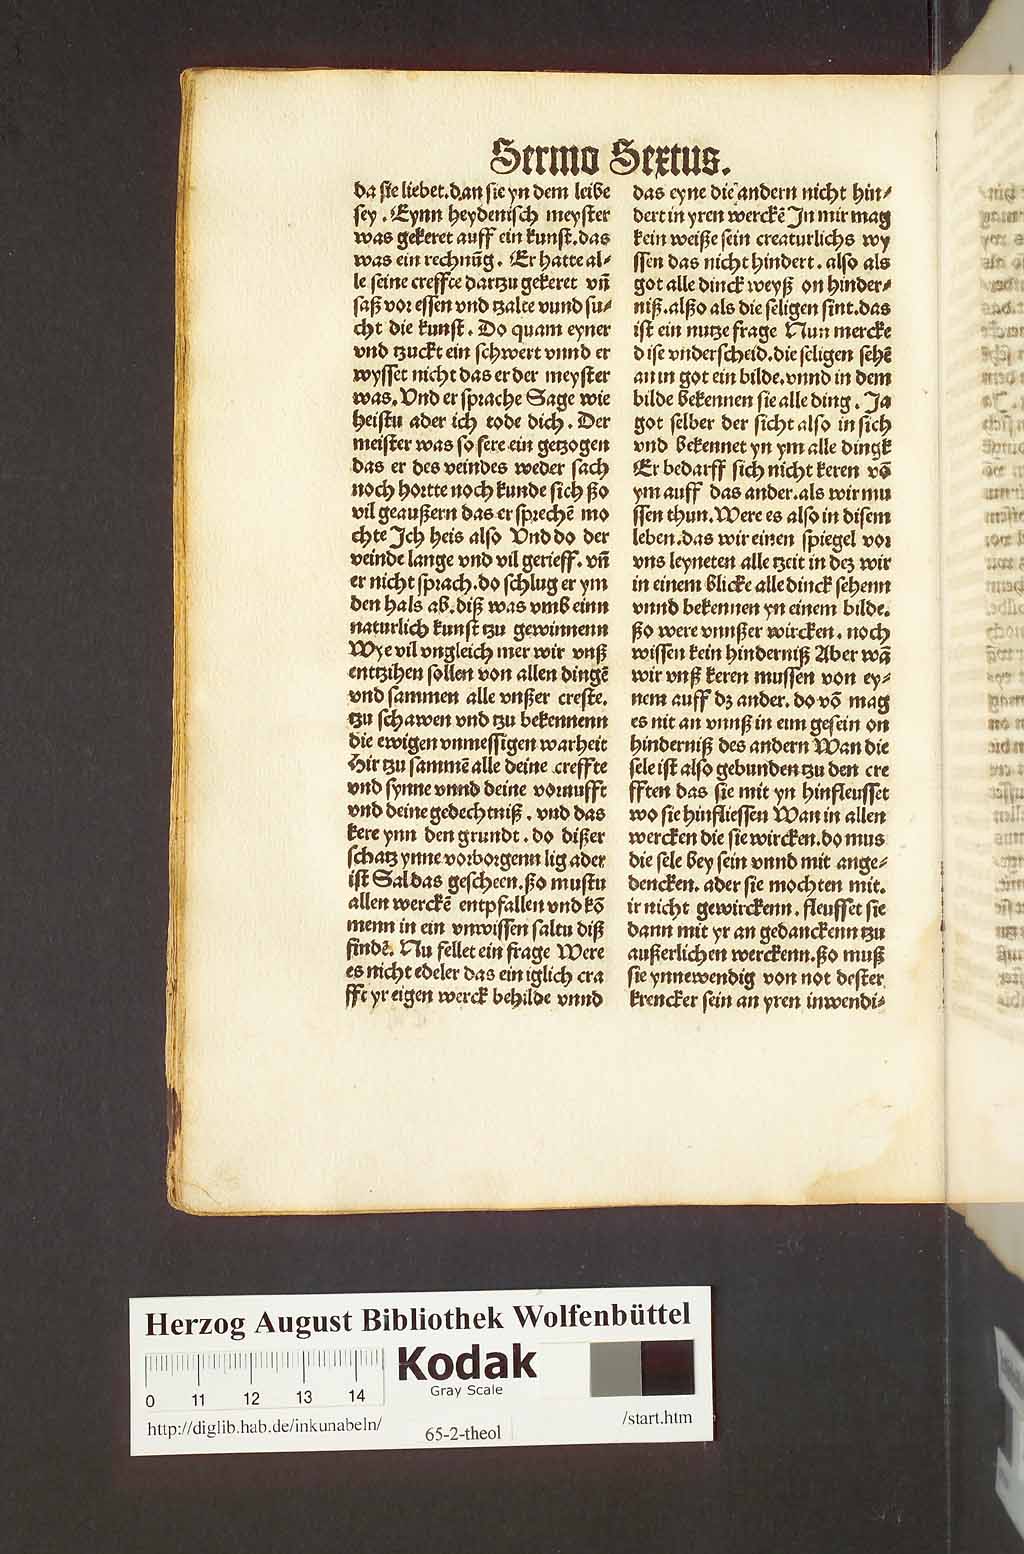 Sermo Sextus.
da sie liebet. dan sie yn dem leibe
sey. Eynn heydenisch meyster
was gekeret auff ein kunst. das
was ein rechnūg. Er hatte al⸗
le seine creffte dartzu gekeret vn̄
saß vor essen vnd tzalte vund su⸗
cht die kunst. Do quam eyner
vnd tzuckt ein schwert vnnd er
wysset nicht das er der meyster
was. Vnd er sprache Sage wie
heistu ader ich tode dich. Der
meister was so sere ein getzogen
das er des veindes weder sach
noch hortte noch kunde sich ßo
vil geaußern das er sprechē mo
chte Ich heis also Vnd do der
veinde lange vnd vil gerieff. vn̄
er nicht sprach. do schlug er ym
den hals ab. diß was vmb einn
naturlich kunst tzu gewinnenn
Wye vil vngleich mer wir vnß
entzihen sollen von allen dingē
vnd sammen alle vnßer creste.
tzu schawen vnd tzu bekennenn
die ewigen vnmessigen warheit
Hir tzu sammē alle deine creffte
vnd synne vnnd deine vornufft
vnd deine gedechtniß. vnd das
kere ynn den grundt. do dißer
schatz ynne vorborgenn lig ader
ist Sal das gescheen. ßo mustu
allen werckē entpfallen vnd kō
menn in ein vnwissen saltu diß
findē. Nu fellet ein frage Were
es nicht edeler das ein iglich cra
fft yr eigen werck behilde vnnd
das eyne die andern nicht hin⸗
dert in yren werckē In mir mag
kein weiße sein creaturlichs wy
ssen das nicht hindert. also als
got alle dinck weyß on hinder⸗
niß. alßo als die seligen sint. das
ist ein nutze frage Nun mercke
dise vnderscheid. die seligen sehē
an in got ein bilde. vnnd in dem
bilde bekennen sie alle ding. Ja
got selber der sicht also in sich
vnd bekennet yn ym alle dingk
Er bedarff sich nicht keren vō
ym auff das ander. als wir mu
ssen thun. Were es also in disem
leben. das wir einen spiegel vor
vns leyneten alle tzeit in dez wir
in einem blicke alle dinck sehenn
vnnd bekennen yn einem bilde.
ßo were vnnßer wircken. noch
wissen kein hinderniß Aber wā
wir vnß keren mussen von ey⸗
nem auff dz ander. do vō mag
es nit an vnnß in eim gesein on
hinderniß des andern Wan die
sele ist also gebunden tzu den cre
fften das sie mit yn hinfleusset
wo sie hinfliessen Wan in allen
wercken die sie wircken. do mus
die sele bey sein vnnd mit ange⸗
dencken. ader sie mochten mit.
ir nicht gewirckenn. fleusset sie
dann mit yr an gedanckenn tzu
außerlichen werckenn. ßo muß
sie ynnewendig von not dester
krencker sein an yren inwendi⸗
Herzog August Bibliothek Wolfenbüttel
Kodak
Gray Scale
0 11 12 13 14
http://diglib.hab.de/inkunabeln/
65-2-theol
/start.htm